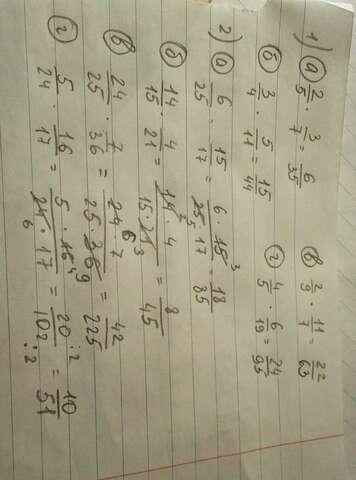 1) а) 2/5 · 3/7 = 6/35 в) 2/9 · 11/7 = 22/63
б) 3/4 · 5/11 = 15/44 г) 4/5 · 6/19 = 24/95
2) а) 6/25 · 15/17 = 6 · 15 3 / 25 5 · 17 = 18/85
б) 14/15 · 4/21 = 14 2 · 4 / 15 · 21 3 = 8/45
в) 24/25 · 7/36 = 24 6 · 7 / 25 · 36 9 = 42/225
г) 5/24 · 16/17 = 5 · 16 4 / 24 6 · 17 = 20 :2 / 102 :2 = 10/51